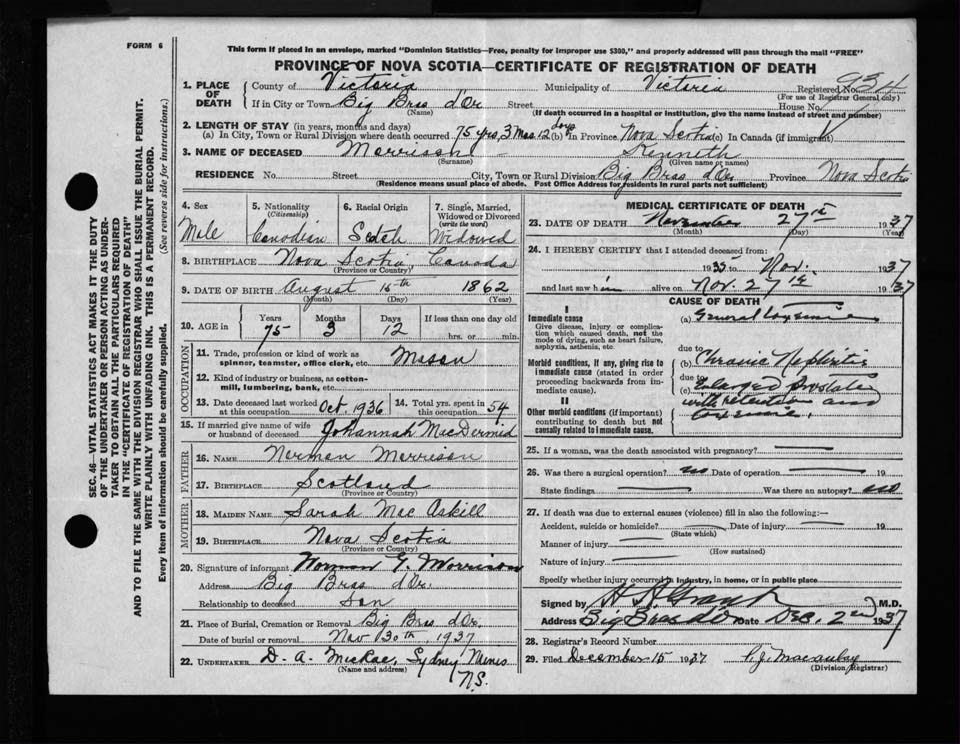 FORM 6
This form if placed in an envelope, marked "Dominion Statistics—Free, penalty for improper use $300," and properly addressed will pass through the mail "FREE"
PROVINCE OF NOVA SCOTIA—CERTIFICATE OF REGISTRATION OF DEATH
1. PLACE OF DEATH County of Victoria Municipality of Victoria Registered No. 934
(For use of Registrar General only)
If in City or Town Big Bras d'Or Street House No.
(Name) (If death occurred in a hospital or institution, give the name instead of street and number)
2. LENGTH OF STAY (in years, months and days)
(a) In City, Town or Rural Division where death occurred 75 yrs, 3 Mos. 12 days (b) in Province Nova Scotia (c) In Canada (if immigrant)
3. NAME OF DECEASED Morrison Kenneth
(Surname) (Given name or names)
RESIDENCE No. Street City, Town or Rural Division Big Bras d'Or Province Nova Scotia
(Residence means usual place of abode. Post Office Address for residents in rural parts not sufficient)
4. Sex 5. Nationality (Citizenship) 6. Racial Origin 7. Single, Married, Widowed or Divorced (write the word)
Male Canadian Scotch Widowed
8. BIRTHPLACE Nova Scotia Canada
(Province or Country)
9. DATE OF BIRTH August 15th 1862
(Month) (Day) (Year)
10. AGE in Years Months Days If less than one day old
75 3 12 hrs. or min.
OCCUPATION
11. Trade, profession or kind of work as spinner, teamster, office clerk, etc. Mason
12. Kind of industry or business, as cotton-mill, lumbering, bank, etc.
13. Date deceased last worked at this occupation Oct. 1936 14. Total yrs. spent in this occupation 54
15. If married give name of wife or husband of deceased Johannah MacDermid
FATHER
16. NAME Norman Morrison
17. BIRTHPLACE Scotland
(Province or Country)
MOTHER
18. MAIDEN NAME Sarah Mac Askill
19. BIRTHPLACE Nova Scotia
(Province or Country)
20. Signature of informant Norman G. Morrison
Address Big Bras d'Or.
Relationship to deceased Son
21. Place of Burial, Cremation or Removal Big Bras d'Or.
Date of burial or removal Nov 30th 1937
22. UNDERTAKER D. A. McRae, Sydney Mines
(Name and address) N.S.
MEDICAL CERTIFICATE OF DEATH
23. DATE OF DEATH November 27th 1937
(Month) (Day) (Year)
24. I HEREBY CERTIFY that I attended deceased from:
1935 to Nov. 1937
and last saw him alive on Nov. 27th 1937
CAUSE OF DEATH
I
Immediate cause (a) General Toxemia
Give disease, injury or complication which caused death, not the mode of dying, such as heart failure, asphyxia, asthenia, etc.
due to
Morbid conditions, if any, giving rise to immediate cause (stated in order proceeding backwards from immediate cause). (b) Chronic Nephritis
due to
(c) Enlarged Prostate
with retention and
Toxemia.
II
Other morbid conditions (if important) contributing to death but not causally related to immediate cause.
25. If a woman, was the death associated with pregnancy?
26. Was there a surgical operation? no Date of operation 19
State findings Was there an autopsy? no
27. If death was due to external causes (violence) fill in also the following:—
Accident, suicide or homicide? Date of injury 19
(State which)
Manner of injury
(How sustained)
Nature of injury
Specify whether injury occurred in industry, in home, or in public place
Signed by H A Grant M.D.
Address Big Bras d'Or Date Dec. 2nd 1937
28. Registrar's Record Number
29. Filed December 15 1937 Macaulay
(Division Registrar)
SEC. 46—VITAL STATISTICS ACT MAKES IT THE DUTY
OF THE UNDERTAKER OR PERSON ACTING AS UNDER-
TAKER TO OBTAIN ALL THE PARTICULARS REQUIRED
IN THE "CERTIFICATE OF REGISTRATION OF DEATH"
AND TO FILE THE SAME WITH THE DIVISION REGISTRAR WHO SHALL ISSUE THE BURIAL PERMIT.
WRITE PLAINLY WITH UNFADING INK. THIS IS A PERMANENT RECORD.
Every item of information should be carefully supplied. (See reverse side for instructions.)